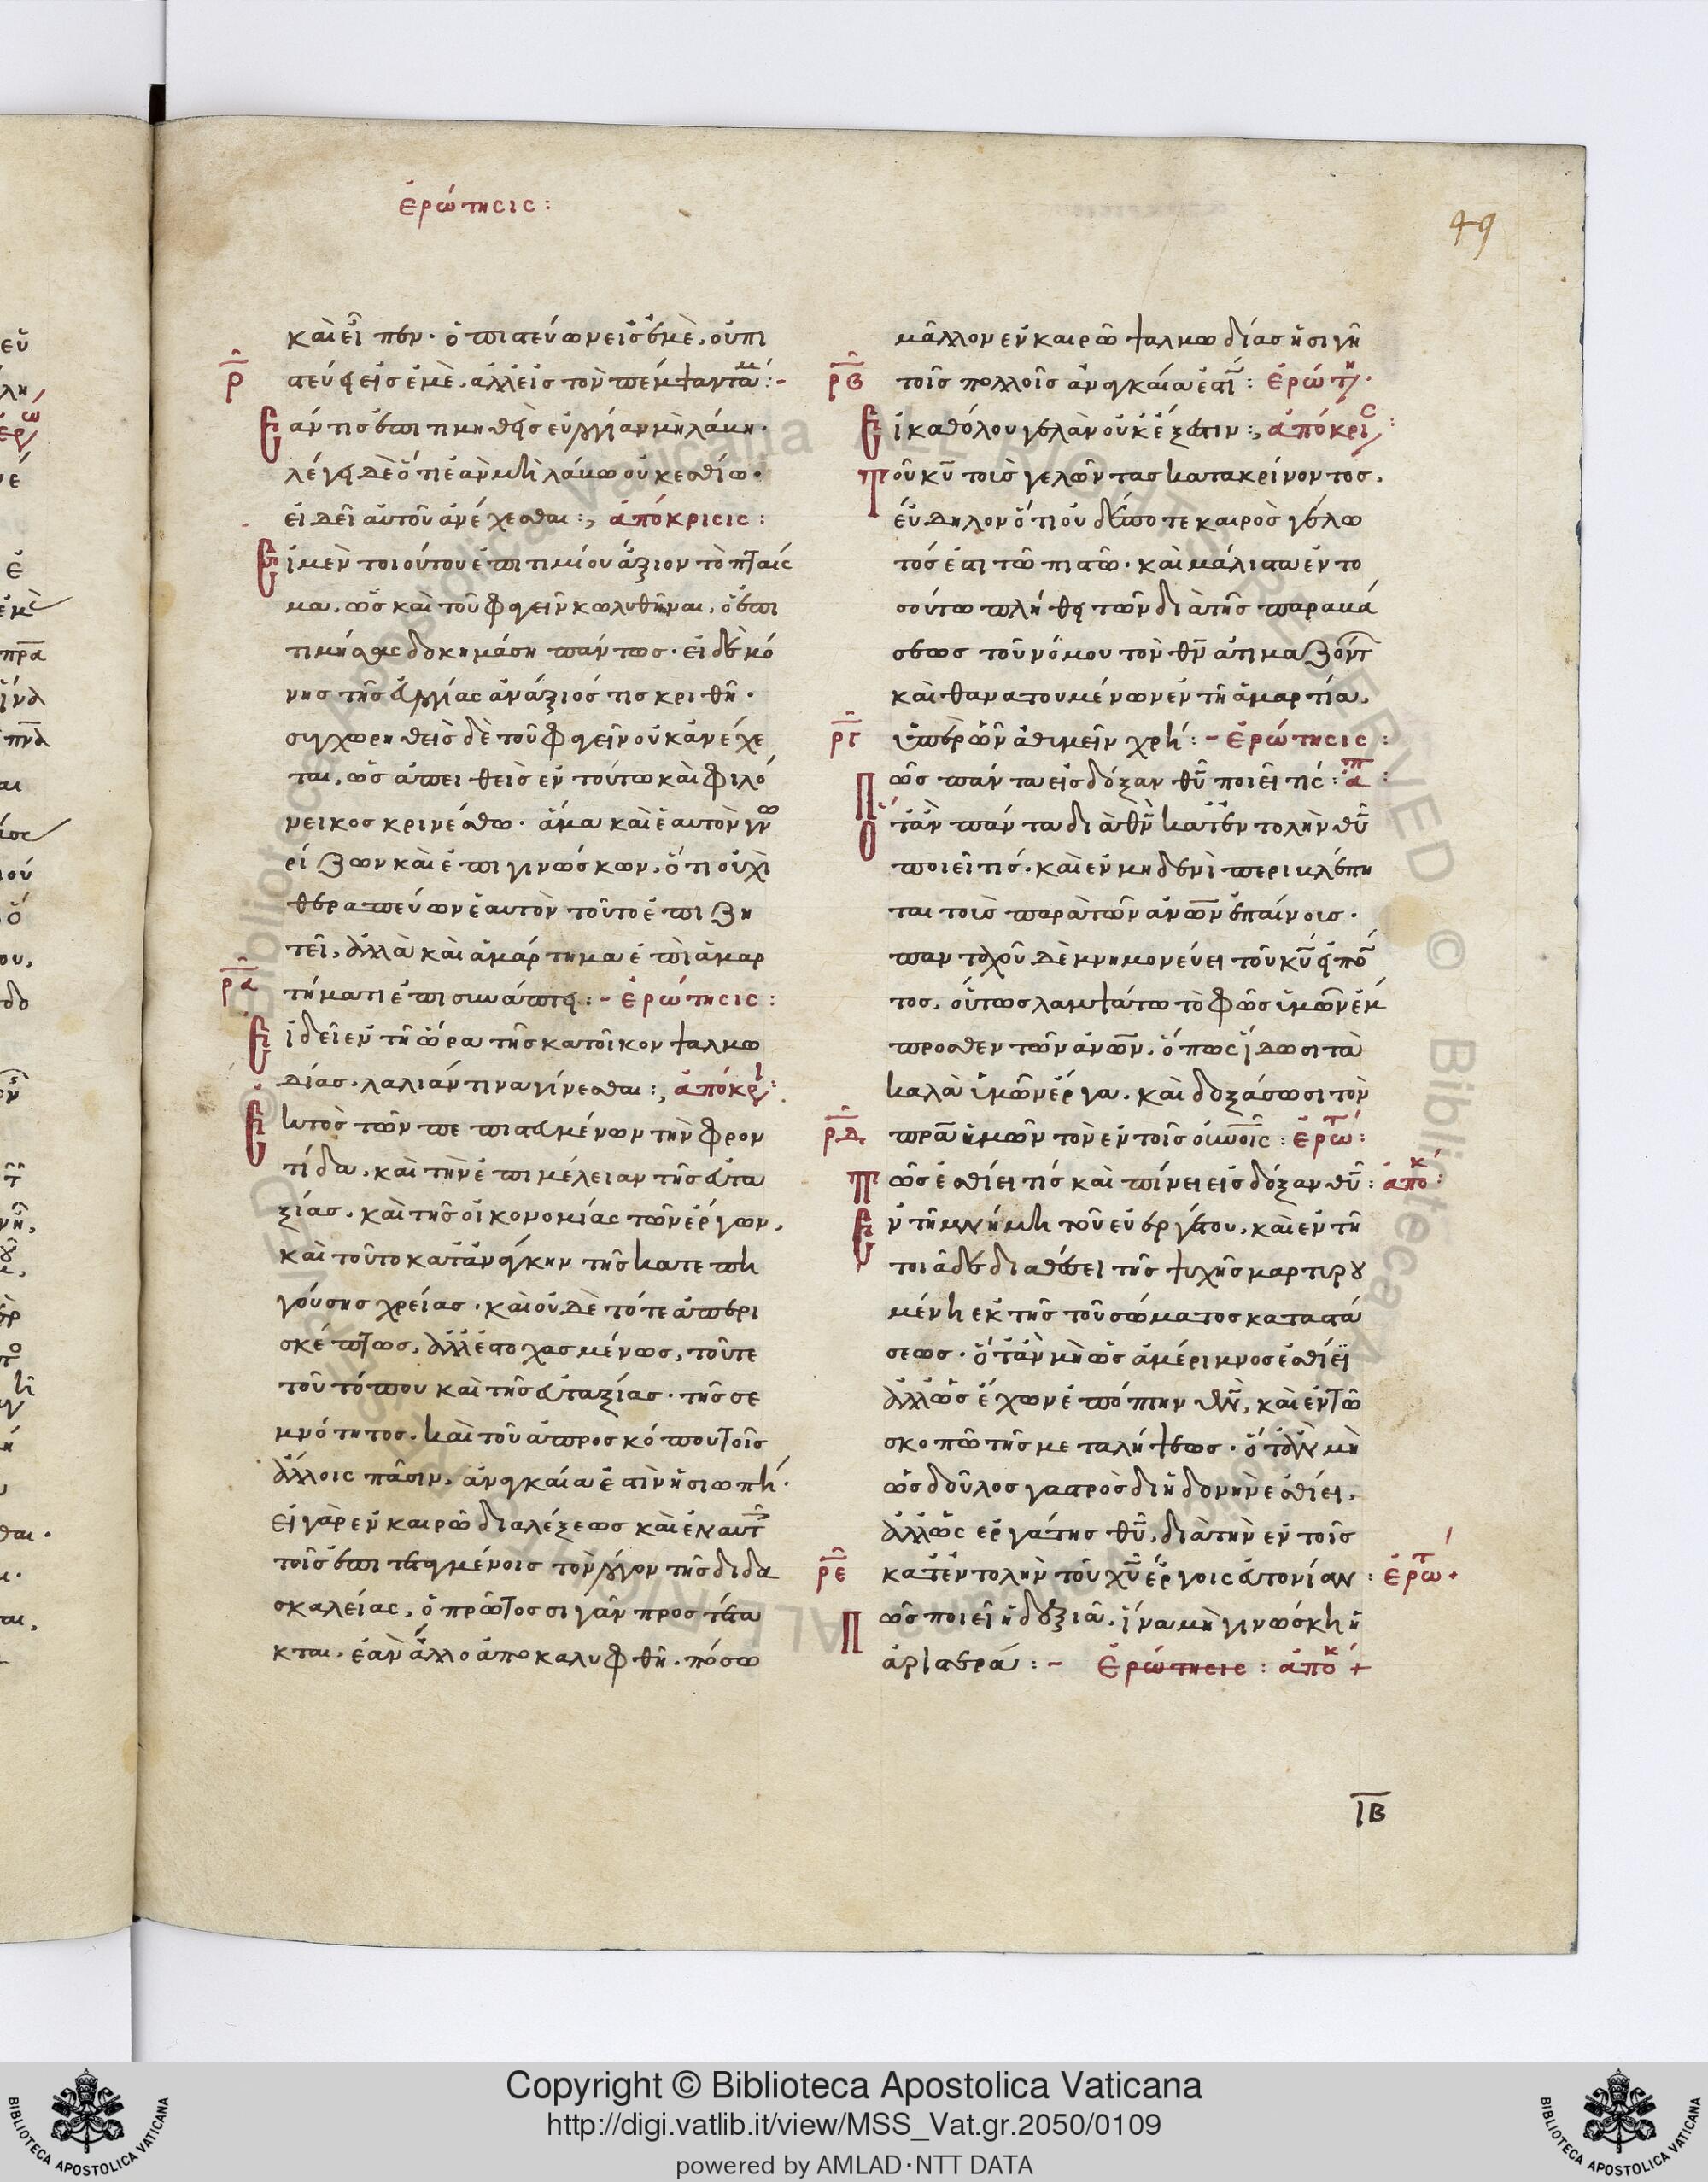 ἐρώτησις:
49
καὶ εἶπεν· ὁ πιστεύων εἰς ἐμὲ, οὐ πι
ρ̅ στεύει εἰς ἐμὲ, ἀλλ' εἰς τὸν πέμψαντά μ:-
Ἐάν τις ἐπιτιμηθεὶς εὐλογίαν μὴ λάβη·
λέγει δὲ ὅτι ἐὰν μὴ λάβω οὐκ ἐσθίω·
εἰ δεῖ αὐτοῦ ἀνέχεσθαι:, ἀπόκρισις:
Εἰ μὲν τοιούτου ἐπιτιμίου ἄξιον τὸ πταῖσ
μα, ὡς καὶ τοῦ φαγεῖν κωλυθῆναι, ὁ ἐπι
τιμήσας δοκημάση πάντως· εἰ δὲ μό
νης τῆς εὐλογίας ἀνάξιός τις κριθῆ·
συγχωρηθεὶς δὲ τοῦ φαγεῖν οὐκ ἀνέχε
ται, ὡς ἀπειθεὶς ἐν τούτω καὶ φιλό
νεικος κρινέσθω· ἅμα καὶ ἑαυτὸν γνω
ρίζων καὶ ἐπιγινώσκων, ὅτι οὐχὶ
θεραπεύων ἑαυτὸν τοῦτο ἐπιζη
τεῖ, ἀλλὰ καὶ ἁμάρτημα ἐπὶ ἁμαρ
ρ̅α̅ τήματι ἐπισυνάπτει:- ἐρώτησις:
Εἰ δεῖ ἐν τῆ ὥρα τῆς κατοῖκον ψαλμω
δίας· λαλιάν τινα γίνεσθαι:, ἀπόκρι:
Ἐκτὸς τῶν πεπιστευμένων τὴν φρον
τίδα, καὶ τὴν ἐπιμέλειαν τῆς εὐτα
ξίας, καὶ τῆς οἰκονομίας τῶν ἔργων,
καὶ τοῦτο κατ' ἀνάγκην τῆς κατεπη
γούσης χρείας· καὶ οὐδὲ τότε ἀπερι
σκέπτως, ἀλλ' ἐστοχασμένως, τοῦ τε
τοῦ τόπου καὶ τῆς εὐταξίας· τῆς σε
μνότητος, καὶ τοῦ ἀπροσκόπου τοῖς
ἄλλοις πᾶσιν, ἀναγκαία ἐστὶν ἡ σιωπή·
εἰ γὰρ ἐν καιρῶ διαλέξεως καὶ ἐν αυτ
τοῖς ἐπιτεταγμένοις τὸν λόγον τῆς διδα
σκαλείας, ὁ πρῶτος σιγᾶν προστέτα
κται, ἐὰν ἄλλο ἀποκαλυφθῆ· πόσω
μᾶλλον ἐν καιρῶ ψαλμωδίας ἡ σιγὴ
ρ̅β̅ τοῖς πολλοῖς ἀναγκαία ἐστί: ἐρώτη·
Εἰ καθόλου γελὰν οὐκ ἔξεστιν:, ἀπόκρις:
Τοῦ κ̅υ̅ τοὺς γελῶντας κατακρίνοντος,
εὔδηλον ὅτι οὐδέποτε καιρὸς γέλω
τός ἐστι τῶ πιστῶ· καὶ μάλιστα ἐν το
σούτω πλήθει τῶν διὰ τῆς παραβά
σεως τοῦ νόμου τὸν θ̅ν̅ ἀτιμαζόντ
καὶ θανατουμένων ἐν τῆ ἁμαρτία,
ρ̅γ̅ ὑπὲρ ὧν ἀθυμεῖν χρή:- Ἐρώτησις:
Πῶς πάντα εἰς δόξαν θ̅υ̅ ποιεῖ τίς: ἀπ:
Ὅταν πάντα διὰ θ̅ν̅ κατ' ἐντολὴν θ̅υ̅
ποιεῖ τίς· καὶ ἐν μηδενὶ περικλέπη
ται τοῖς παρὰ τῶν ἀν̅ω̅ν̅ ἐπαίνοις·
πανταχοῦ δὲ μνημονεύει τοῦ κ̅υ̅ εἰπό
τος, οὕτως λαμψάτω τὸ φῶς ὑμῶν ἔμ
προσθεν τῶν ἀν̅ω̅ν̅, ὅπως ἴδωσι τὰ
καλὰ ὑμῶν ἔργα· καὶ δοξάσωσι τὸν
ρ̅δ̅ πρ̅α̅ ἡμῶν τὸν ἐν τοῖς οὐ̅ν̅οῖς: ἐρωτ:
Πῶς ἐσθίει τίς καὶ πίνει εἰς δόξαν θ̅υ̅: ἀποκ:
Ἐν τῆ μνήμη τοῦ εὐεργέτου, καὶ ἐν τῆ
τοιᾶδε διαθέσει τῆς ψυχῆς μαρτυρου
μένη ἐκ τῆς τοῦ σώματος καταστά
σεως· ὅταν μὴ ὡς ἀμέριμνος ἐσθίει
ἀλλ' ὡς ἔχων ἐπόπτην θ̅ν̅, καὶ ἐν τῶ
σκοπῶ τῆς μεταλήψεως· ὅταν μὴ
ὡς δοῦλος γαστρὸς δι' ἡδονὴν ἐσθίει,
ἀλλ' ὡς ἐργάτης θ̅υ̅, διὰ τὴν ἐν τοῖς
ρ̅ε̅ κατ' ἐντολὴν τοῦ χ̅υ̅ ἔργοις εὐτονίαν: ἐρωτ·
Πῶς ποιεῖ ἡ δεξιᾶ, ἵνα μὴ γινώσκη ἡ
ἀριστερά:- Ἐρώτησις: ἀποκ +
ΙΒ
Copyright © Biblioteca Apostolica Vaticana
http://digi.vatlib.it/view/MSS_Vat.gr.2050/0109
powered by AMLAD·NTT DATA
BIBLIOTECA APOSTOLICA VATICANA
BIBLIOTECA APOSTOLICA VATICANA